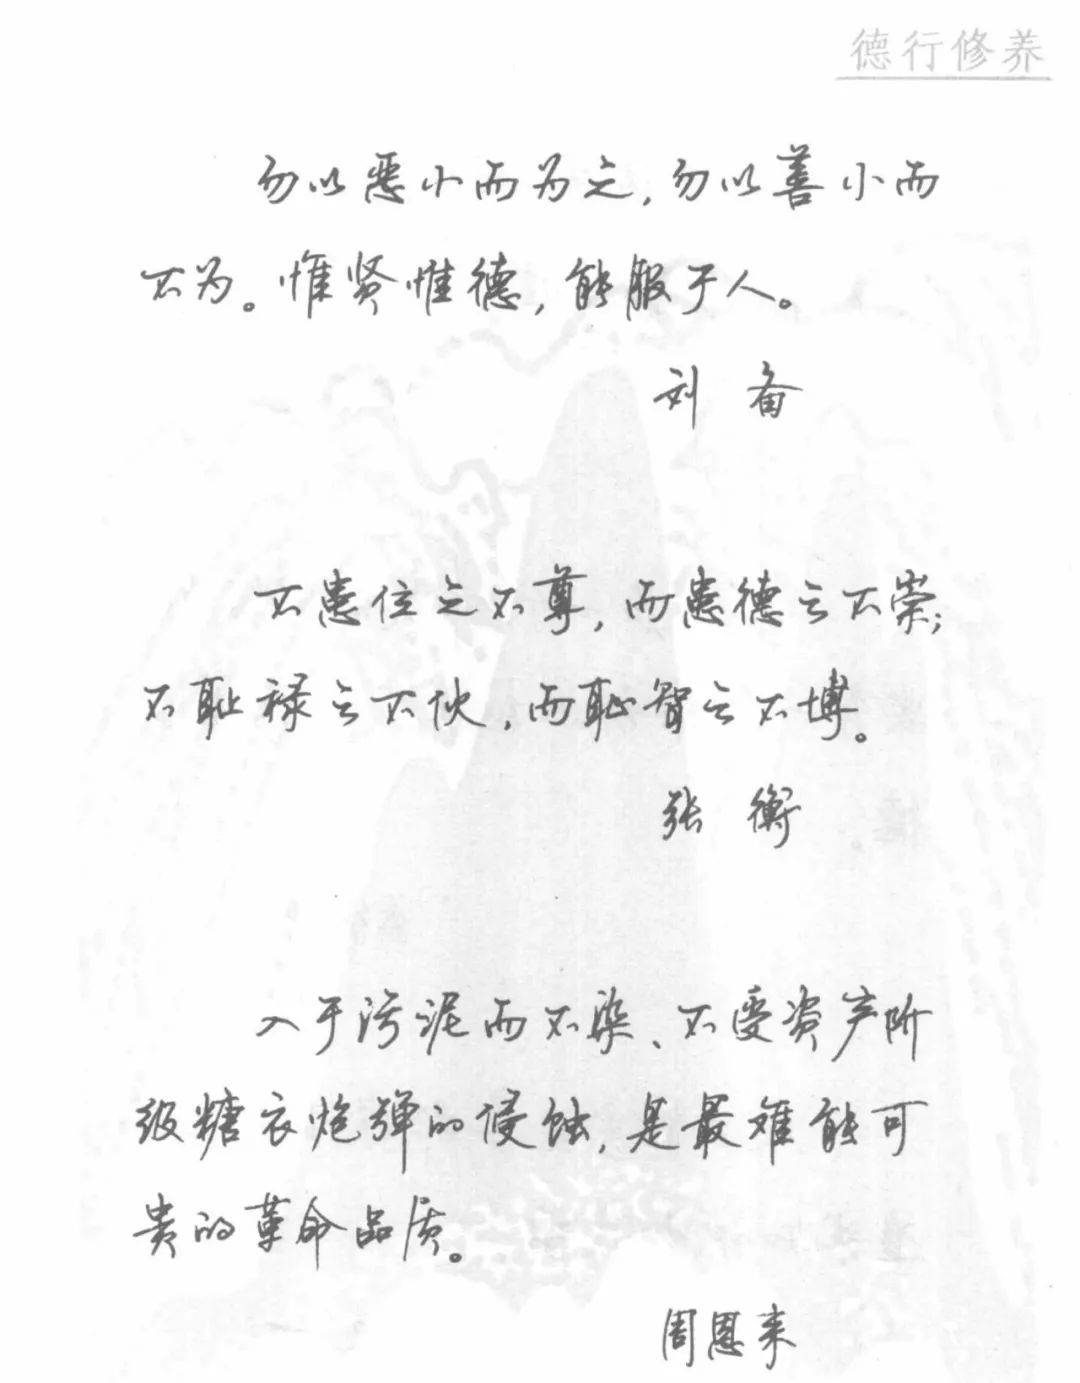 德行修养
勿以恶小而为之，勿以善小而
不为。惟贤惟德，能服于人。
刘 备
不患位之不尊，而患德之不崇；
不耻禄之不伙，而耻智之不博。
张 衡
入于污泥而不染、不受资产阶
级糖衣炮弹的侵蚀，是最难能可
贵的革命品质。
周恩来